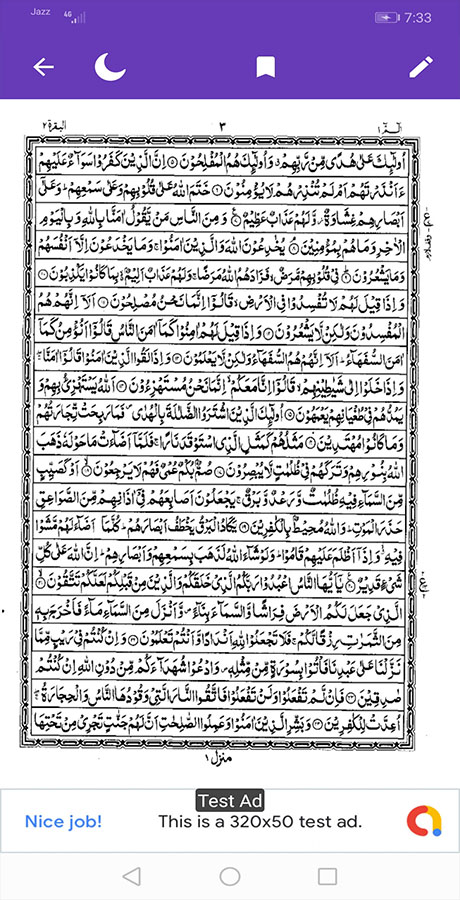 Jazz 4G 7:33
البقرة ٢ ٣ الٓمّٓ ١
اُولٰٓئِكَ عَلٰى هُدًى مِّنْ رَّبِّهِمْ وَاُولٰٓئِكَ هُمُ الْمُفْلِحُوْنَ ۝ اِنَّ الَّذِيْنَ كَفَرُوْا سَوَآءٌ عَلَيْهِمْ
ءَاَنْذَرْتَهُمْ اَمْ لَمْ تُنْذِرْهُمْ لَا يُؤْمِنُوْنَ ۝ خَتَمَ اللّٰهُ عَلٰى قُلُوْبِهِمْ وَعَلٰى سَمْعِهِمْ ؕ وَعَلٰٓى
اَبْصَارِهِمْ غِشَاوَةٌ ؗ وَّلَهُمْ عَذَابٌ عَظِيْمٌ ۝ وَمِنَ النَّاسِ مَنْ يَّقُوْلُ اٰمَنَّا بِاللّٰهِ وَبِالْيَوْمِ
الْاٰخِرِ وَمَا هُمْ بِمُؤْمِنِيْنَ ۝ يُخٰدِعُوْنَ اللّٰهَ وَالَّذِيْنَ اٰمَنُوْا ۚ وَمَا يَخْدَعُوْنَ اِلَّآ اَنْفُسَهُمْ
وَمَا يَشْعُرُوْنَ ۝ فِيْ قُلُوْبِهِمْ مَّرَضٌ ۙ فَزَادَهُمُ اللّٰهُ مَرَضًا ۚ وَلَهُمْ عَذَابٌ اَلِيْمٌۢ ۙ بِمَا كَانُوْا يَكْذِبُوْنَ ۝
وَاِذَا قِيْلَ لَهُمْ لَا تُفْسِدُوْا فِي الْاَرْضِ ۙ قَالُوْٓا اِنَّمَا نَحْنُ مُصْلِحُوْنَ ۝ اَلَآ اِنَّهُمْ هُمُ
الْمُفْسِدُوْنَ وَلٰكِنْ لَّا يَشْعُرُوْنَ ۝ وَاِذَا قِيْلَ لَهُمْ اٰمِنُوْا كَمَآ اٰمَنَ النَّاسُ قَالُوْٓا اَنُؤْمِنُ كَمَآ
اٰمَنَ السُّفَهَآءُ ؕ اَلَآ اِنَّهُمْ هُمُ السُّفَهَآءُ وَلٰكِنْ لَّا يَعْلَمُوْنَ ۝ وَاِذَا لَقُوا الَّذِيْنَ اٰمَنُوْا قَالُوْٓا اٰمَنَّا ۚۖ
وَاِذَا خَلَوْا اِلٰى شَيٰطِيْنِهِمْ ۙ قَالُوْٓا اِنَّا مَعَكُمْ ۙ اِنَّمَا نَحْنُ مُسْتَهْزِءُوْنَ ۝ اَللّٰهُ يَسْتَهْزِئُ بِهِمْ وَ
يَمُدُّهُمْ فِيْ طُغْيَانِهِمْ يَعْمَهُوْنَ ۝ اُولٰٓئِكَ الَّذِيْنَ اشْتَرَوُا الضَّلٰلَةَ بِالْهُدٰى ۪ فَمَا رَبِحَتْ تِّجَارَتُهُمْ
وَمَا كَانُوْا مُهْتَدِيْنَ ۝ مَثَلُهُمْ كَمَثَلِ الَّذِي اسْتَوْقَدَ نَارًا ۚ فَلَمَّآ اَضَآءَتْ مَا حَوْلَهٗ ذَهَبَ
اللّٰهُ بِنُوْرِهِمْ وَتَرَكَهُمْ فِيْ ظُلُمٰتٍ لَّا يُبْصِرُوْنَ ۝ صُمٌّۢ بُكْمٌ عُمْيٌ فَهُمْ لَا يَرْجِعُوْنَ ۝ اَوْ كَصَيِّبٍ
مِّنَ السَّمَآءِ فِيْهِ ظُلُمٰتٌ وَّرَعْدٌ وَّبَرْقٌ ۚ يَجْعَلُوْنَ اَصَابِعَهُمْ فِيْٓ اٰذَانِهِمْ مِّنَ الصَّوَاعِقِ
حَذَرَ الْمَوْتِ ؕ وَاللّٰهُ مُحِيْطٌۢ بِالْكٰفِرِيْنَ ۝ يَكَادُ الْبَرْقُ يَخْطَفُ اَبْصَارَهُمْ ؕ كُلَّمَآ اَضَآءَ لَهُمْ مَّشَوْا
فِيْهِ ۙۗ وَاِذَآ اَظْلَمَ عَلَيْهِمْ قَامُوْا ؕ وَلَوْ شَآءَ اللّٰهُ لَذَهَبَ بِسَمْعِهِمْ وَاَبْصَارِهِمْ ؕ اِنَّ اللّٰهَ عَلٰى كُلِّ
شَيْءٍ قَدِيْرٌ ۝ يٰٓاَيُّهَا النَّاسُ اعْبُدُوْا رَبَّكُمُ الَّذِيْ خَلَقَكُمْ وَالَّذِيْنَ مِنْ قَبْلِكُمْ لَعَلَّكُمْ تَتَّقُوْنَ ۝
الَّذِيْ جَعَلَ لَكُمُ الْاَرْضَ فِرَاشًا وَّالسَّمَآءَ بِنَآءً ۪ وَّاَنْزَلَ مِنَ السَّمَآءِ مَآءً فَاَخْرَجَ بِهٖ
مِنَ الثَّمَرٰتِ رِزْقًا لَّكُمْ ۚ فَلَا تَجْعَلُوْا لِلّٰهِ اَنْدَادًا وَّاَنْتُمْ تَعْلَمُوْنَ ۝ وَاِنْ كُنْتُمْ فِيْ رَيْبٍ مِّمَّا
نَزَّلْنَا عَلٰى عَبْدِنَا فَاْتُوْا بِسُوْرَةٍ مِّنْ مِّثْلِهٖ ۪ وَادْعُوْا شُهَدَآءَكُمْ مِّنْ دُوْنِ اللّٰهِ اِنْ كُنْتُمْ
صٰدِقِيْنَ ۝ فَاِنْ لَّمْ تَفْعَلُوْا وَلَنْ تَفْعَلُوْا فَاتَّقُوا النَّارَ الَّتِيْ وَقُوْدُهَا النَّاسُ وَالْحِجَارَةُ ۖۚ
اُعِدَّتْ لِلْكٰفِرِيْنَ ۝ وَبَشِّرِ الَّذِيْنَ اٰمَنُوْا وَعَمِلُوا الصّٰلِحٰتِ اَنَّ لَهُمْ جَنّٰتٍ تَجْرِيْ مِنْ تَحْتِهَا
منزل ١
Test Ad
Nice job! This is a 320x50 test ad.